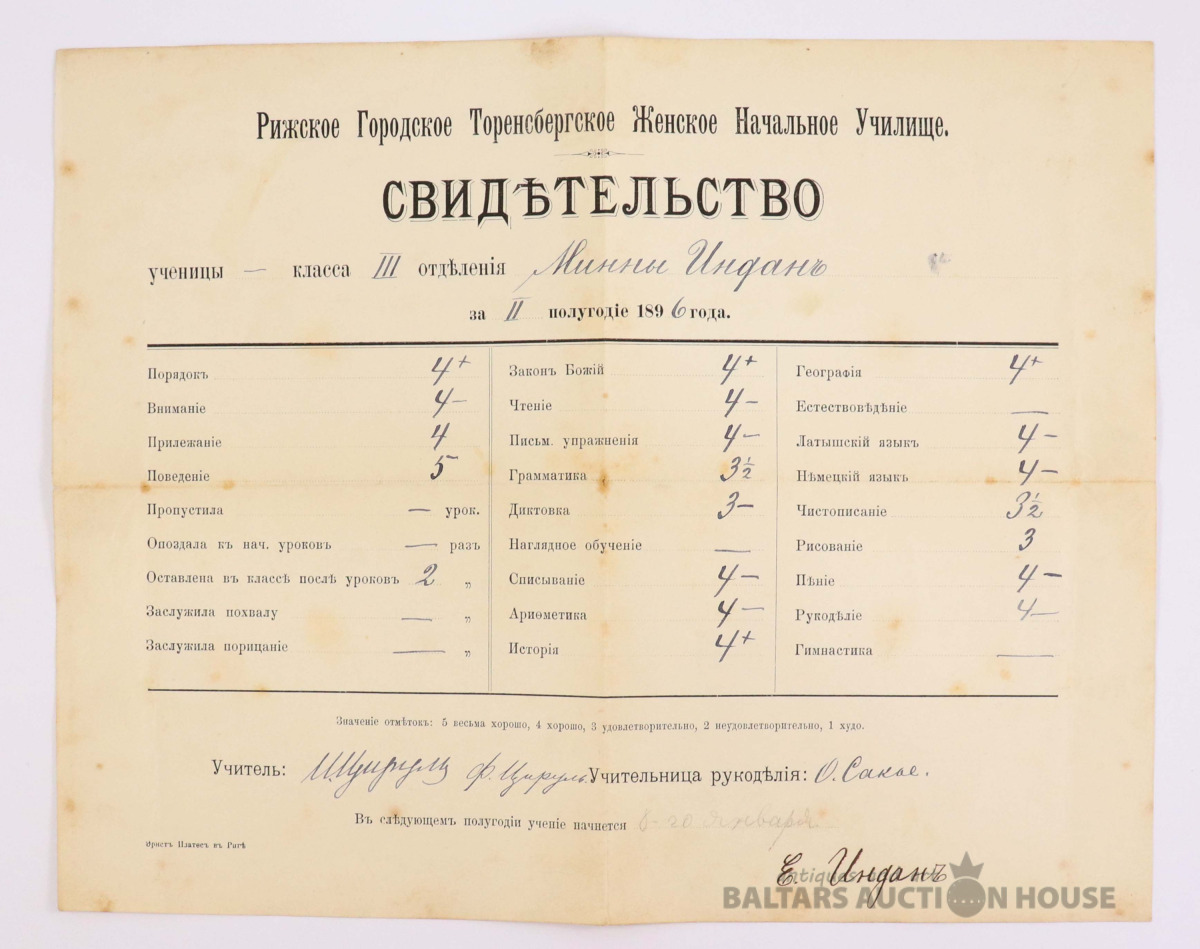 Рижское Городское Торенсбергское Женское Начальное Училище.
СВИДѢТЕЛЬСТВО
ученицы — класса III отдѣленія Минны Инданъ
за II полугодіе 1896 года.
Порядокъ 4+
Вниманіе 4-
Прилежаніе 4
Поведеніе 5
Пропустила — урок.
Опоздала къ нач. уроковъ — разъ
Оставлена въ классѣ послѣ уроковъ 2 „
Заслужила похвалу — „
Заслужила порицаніе — „
Законъ Божій 4+
Чтеніе 4-
Письм. упражненія 4-
Грамматика 3½
Диктовка 3-
Наглядное обученіе —
Списываніе 4-
Ариѳметика 4-
Исторія 4+
Географія 4+
Естествовѣдѣніе —
Латышскій языкъ 4-
Нѣмецкій языкъ 4-
Чистописаніе 3½
Рисованіе 3
Пѣніе 4-
Рукодѣліе 4-
Гимнастика —
Значеніе отмѣтокъ: 5 весьма хорошо, 4 хорошо, 3 удовлетворительно, 2 неудовлетворительно, 1 худо.
Учитель: Ф. Цируль. Учительница рукодѣлія: О. Сакье.
Въ слѣдующемъ полугодіи ученіе начнется 8-го января
Эрнстъ Платесъ въ Ригѣ
Е. Инданъ
Antiques
BALTARS AUCTION HOUSE